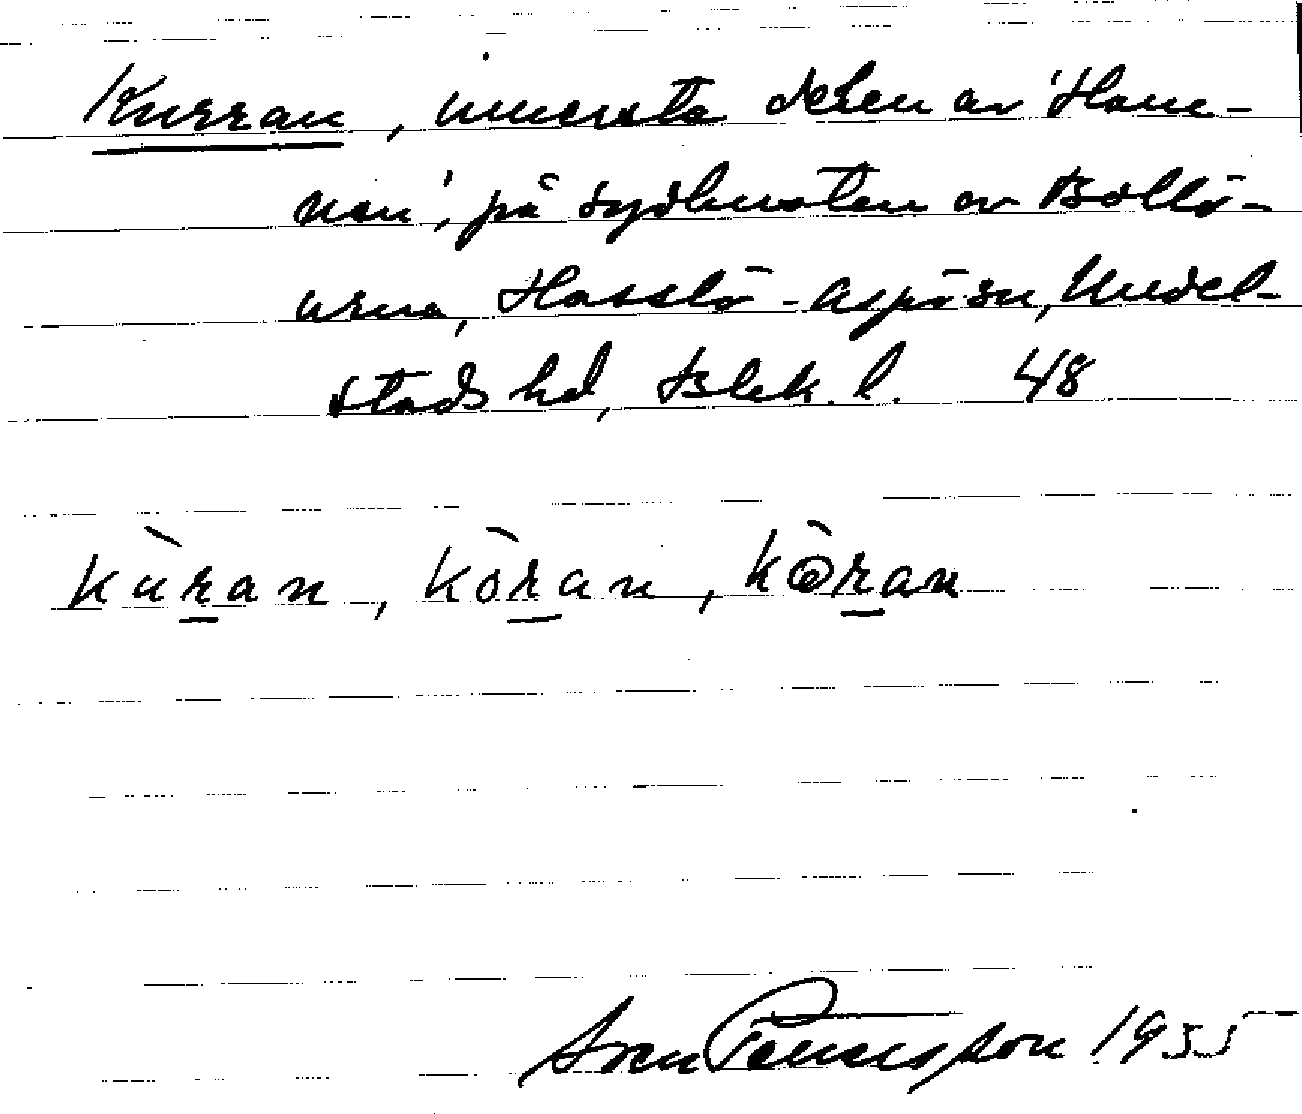 Kurran, innersta delen av 'Ham-
nen', på sydkusten av Bollö-
arna, Hasslö-Aspö sn, Medel-
stads hd, Blek. l. 48
kùran, kòran, kòran
Sven Benson 1955